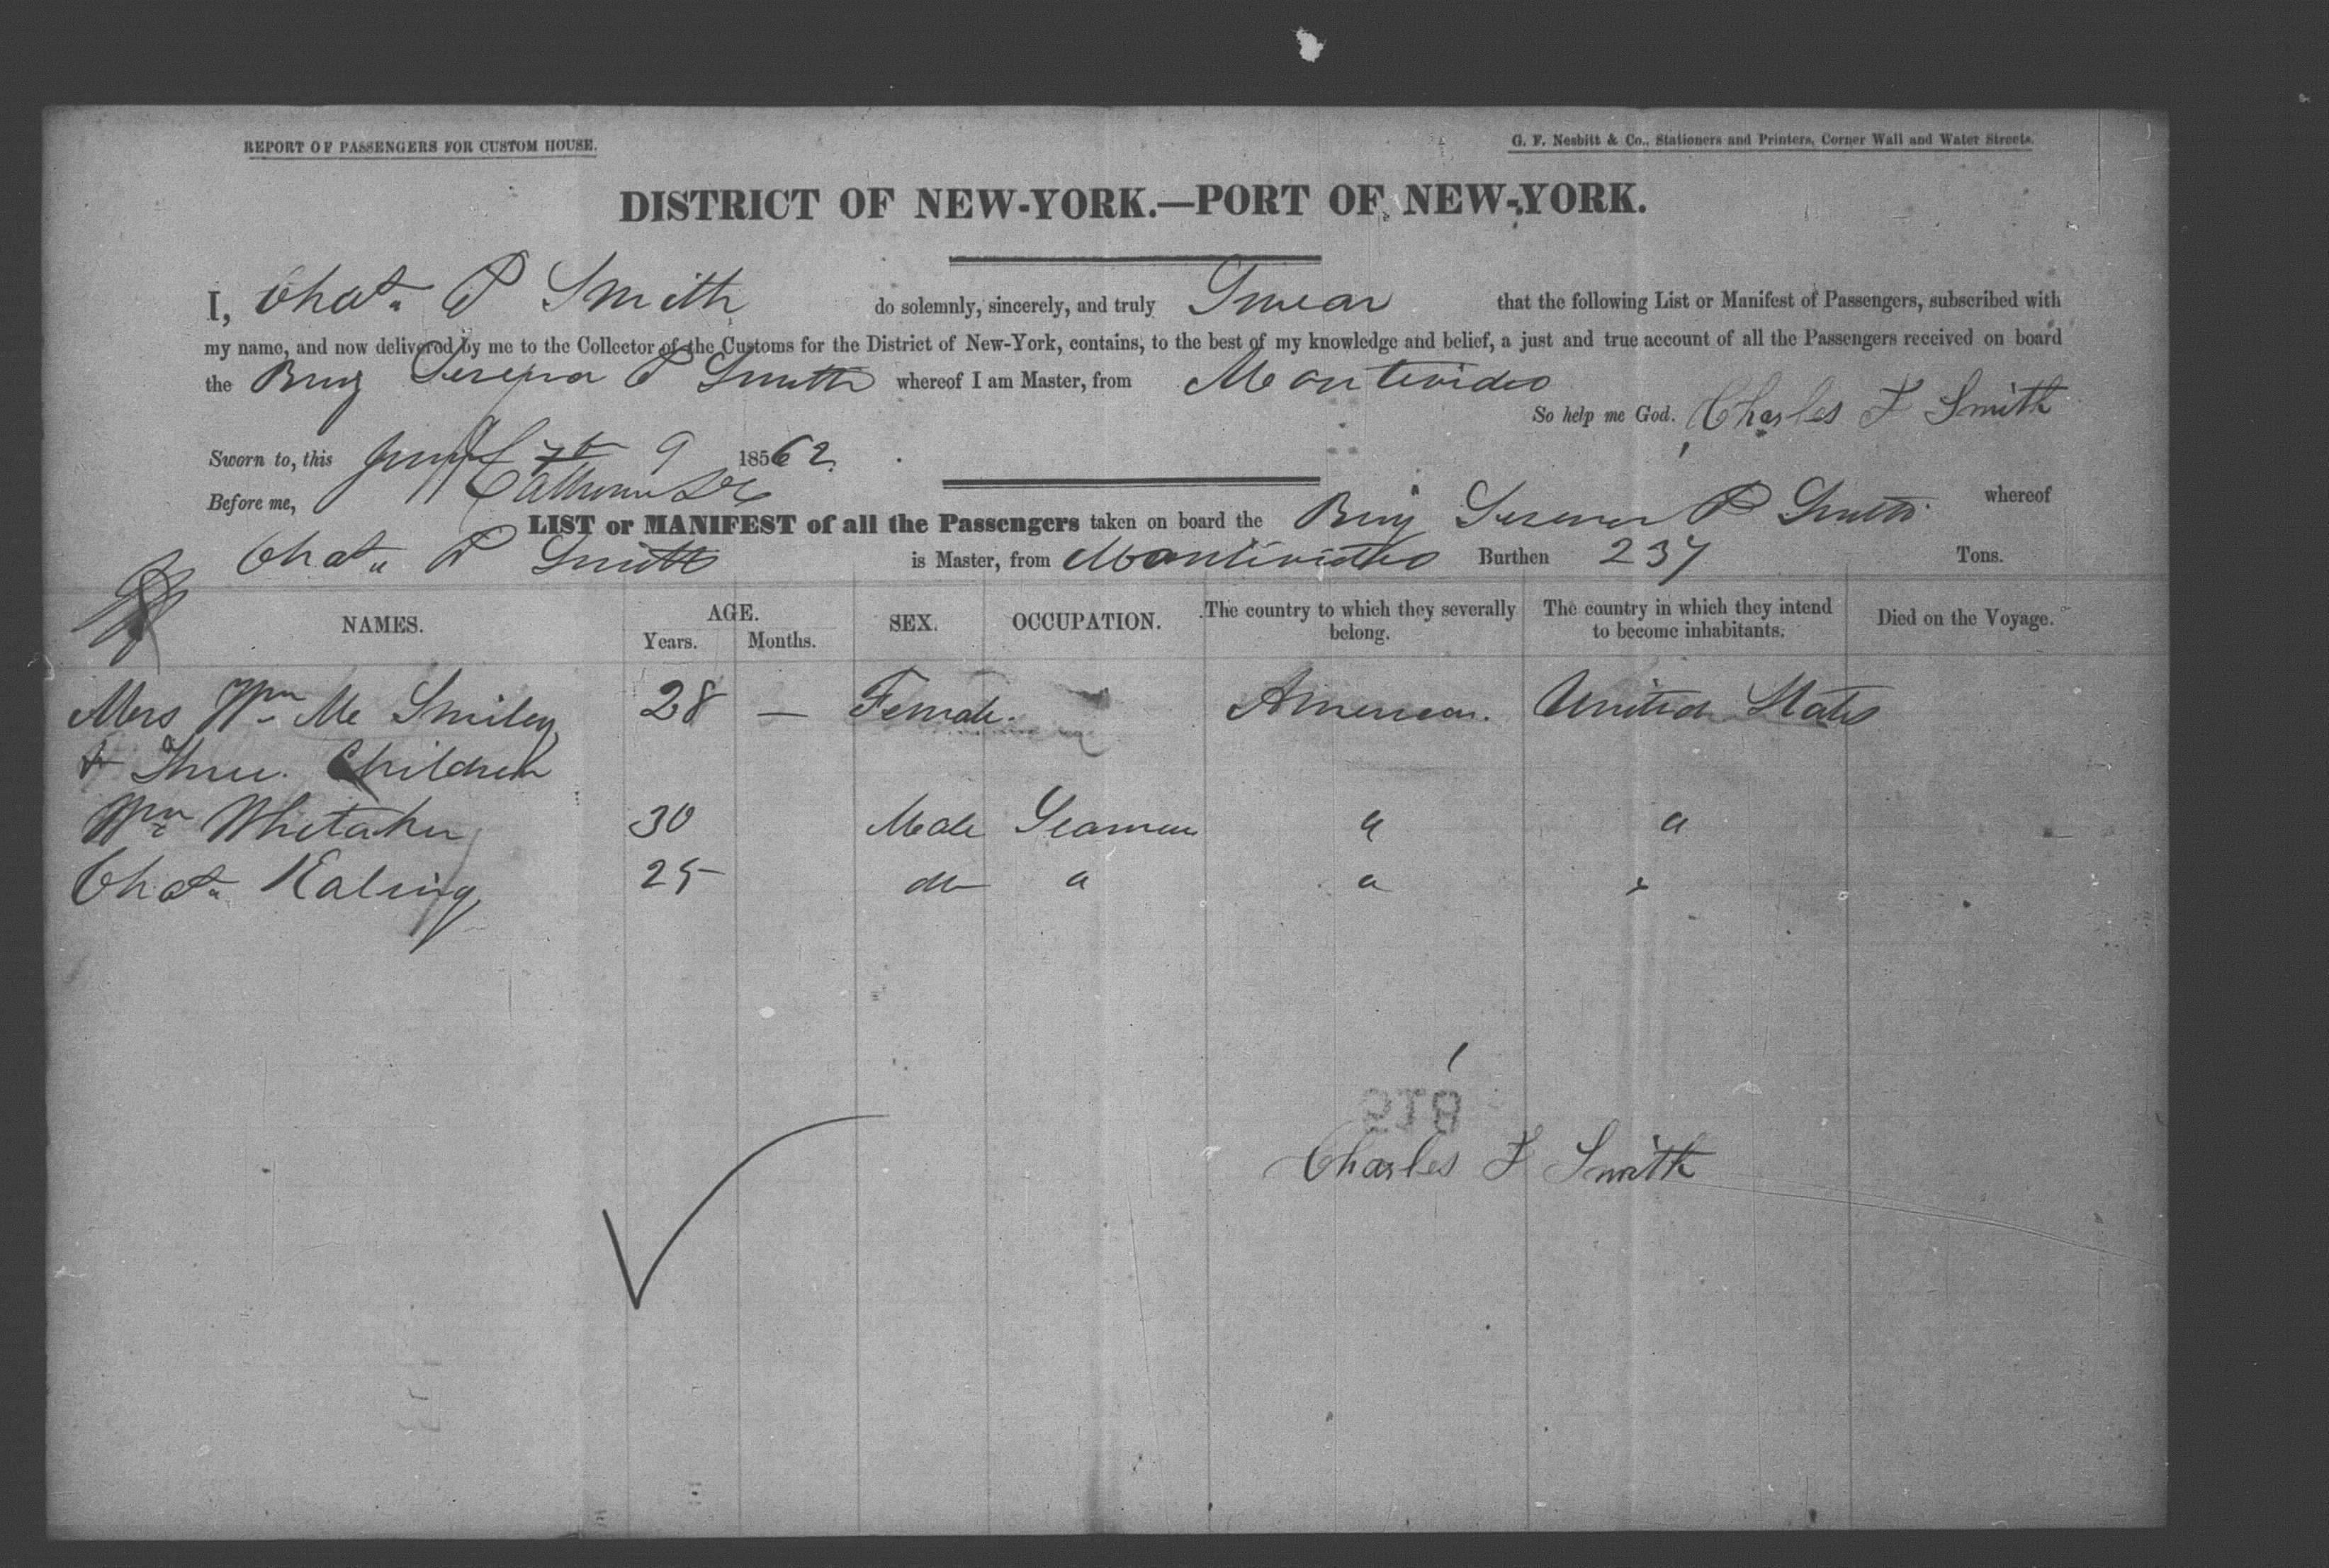 REPORT OF PASSENGERS FOR CUSTOM HOUSE.
G. F. Nesbitt & Co., Stationers and Printers, Corner Wall and Water Streets.
DISTRICT OF NEW-YORK.—PORT OF NEW-YORK.
I, Chas. P Smith do solemnly, sincerely, and truly Swear that the following List or Manifest of Passengers, subscribed with
my name, and now delivered by me to the Collector of the Customs for the District of New-York, contains, to the best of my knowledge and belief, a just and true account of all the Passengers received on board
the Brig Serena P Smith whereof I am Master, from Montevideo
So help me God. Charles F Smith
Sworn to, this 9 18562
Before me,
LIST or MANIFEST of all the Passengers taken on board the Brig Serena P Smith whereof
Chas. P Smith is Master, from Montivideo Burthen 237 Tons.
NAMES. AGE. Years. Months. SEX. OCCUPATION. The country to which they severally belong. The country in which they intend to become inhabitants. Died on the Voyage.
Mrs Wm Mc Smiley 28 — Female. American. United States
& Three Children
Wm Whetaker 30 Male Seaman " "
Chas. Ealing 25 do " " "
518
Charles F Smith